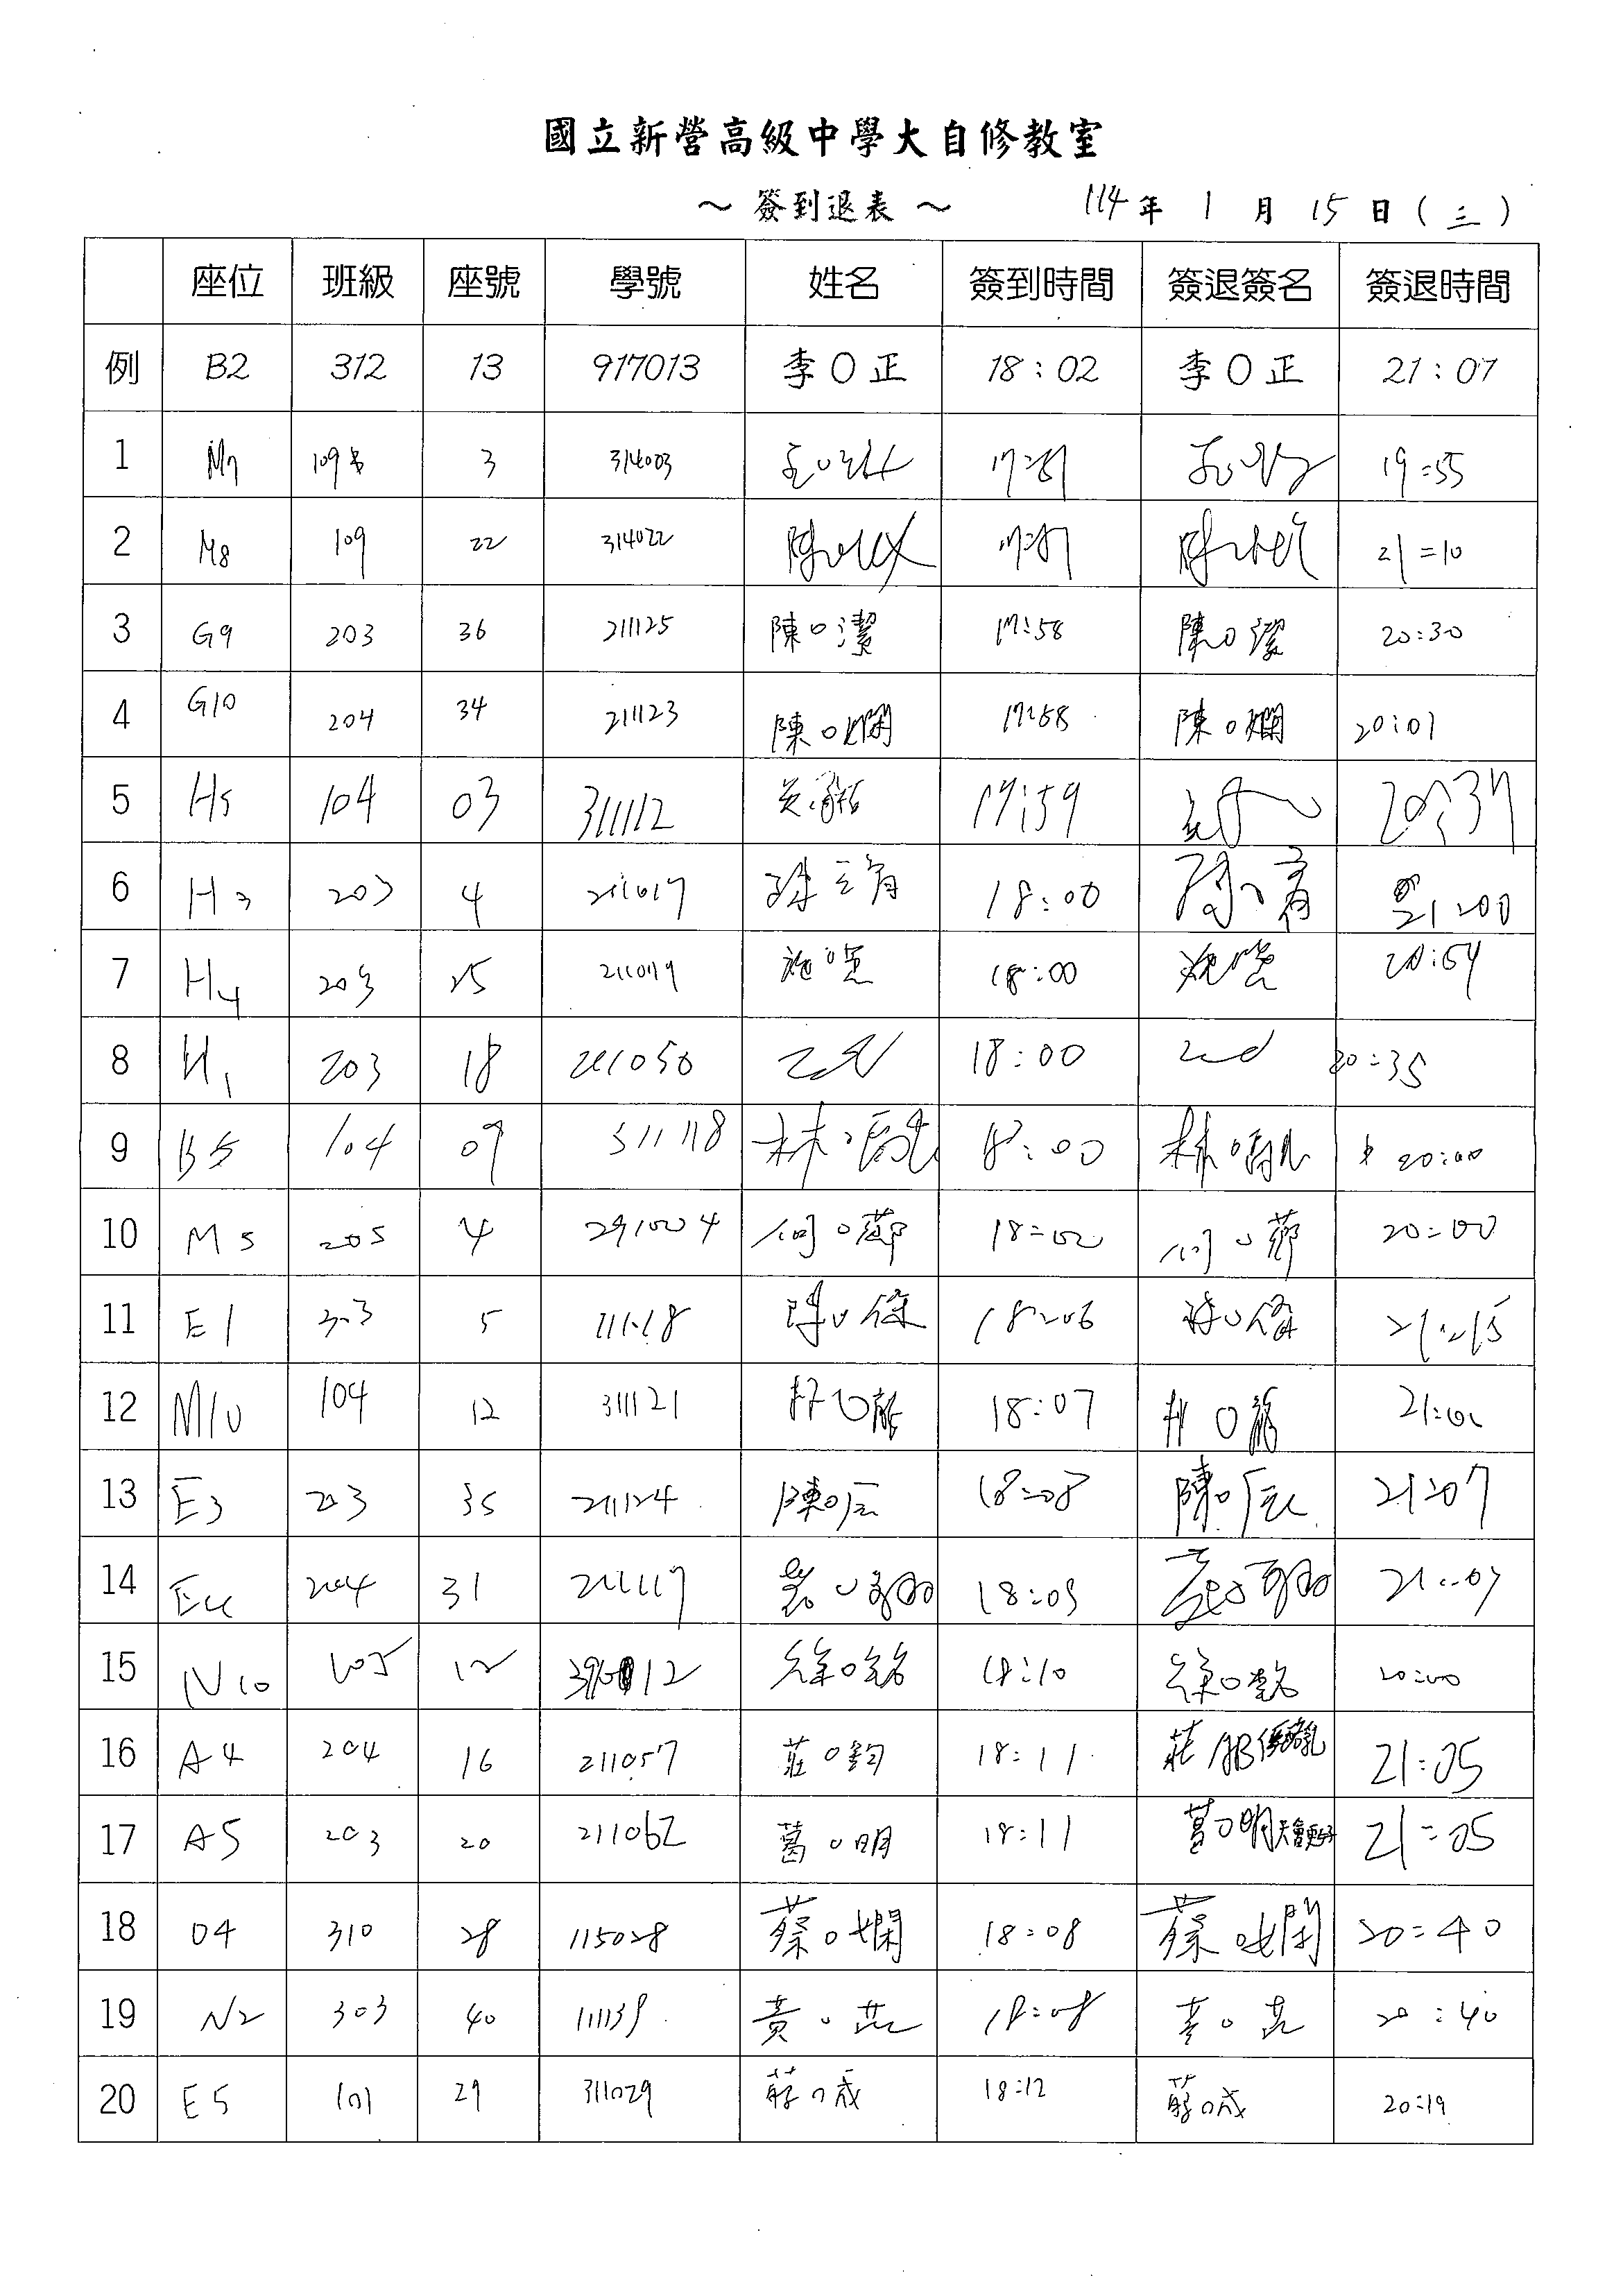 國立新營高級中學大自修教室
～簽到退表～ 114年 1月 15日(三)
座位 班級 座號 學號 姓名 簽到時間 簽退簽名 簽退時間
例 B2 312 13 917013 李O正 18:02 李O正 21:07
1 M7 109 3 314003 19:55
2 M8 109 22 314022 21:10
3 G9 203 36 211125 陳O潔 17:58 陳O潔 20:30
4 G10 204 34 211123 陳O嫻 17:58 陳O嫻 20:01
5 H5 104 03 311112 17:59 20:37
6 H3 203 4 18:00 21:00
7 H4 203 25 18:00 20:54
8 H1 203 18 211050 18:00 20:35
9 B5 104 09 311118 林 18:00 林 20:00
10 M5 205 4 291004 何O 18:02 何O 20:00
11 E1 303 5 18:06 21:15
12 M10 104 12 311121 18:07 21:02
13 E3 203 35 211124 陳O辰 18:08 陳O辰 21:07
14 E4 204 31 211117 18:09 21:07
15 N10 105 12 徐O銘 18:10 徐O銘 20:00
16 A4 204 16 211057 莊O鈞 18:11 莊 21:05
17 A5 203 20 211062 葛O明 18:11 葛O明 21:05
18 D4 310 28 115028 蔡O嫻 18:08 蔡O嫻 20:40
19 N2 303 40 111139 黃O 18:08 黃O 20:40
20 E5 101 29 311029 18:12 20:19